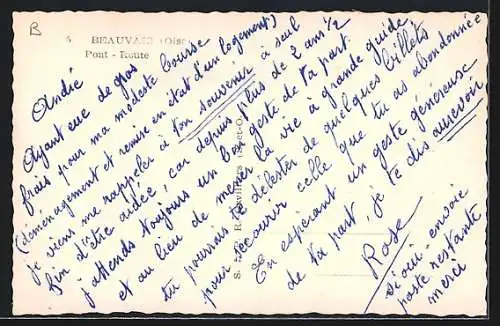 B
BEAUVAIS (Oise)
Pont - Route
André
Ayant eue de gros
frais pour ma modeste bourse
(déménagement et remise en état d'un logement)
je viens me rappeler à ton souvenir à seul
fin d'être aidée, car depuis plus de 2 ans ½
j'attends toujours un bon geste de ta part
et au lieu de mener la vie à grande guide
tu pourrais te délester de quelques billets
pour secourir celle que tu as abandonnée
En espérant un geste généreuse
de ta part, je te dis aurevoir
Rose
si oui envoie
poste restante
merci